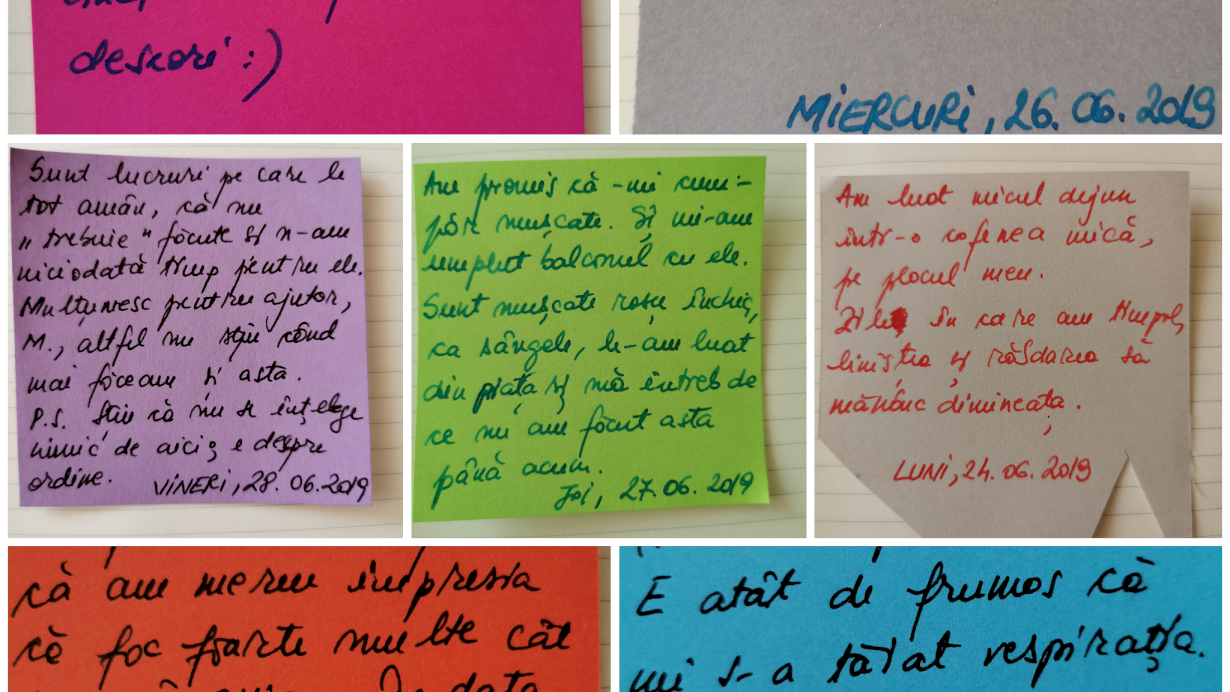 descori :)
MIERCURI, 26.06.2019
Sunt lucruri pe care le
tot amân, că nu
"trebuie" făcute și n-am
niciodată timp pentru ele.
Mulțumesc pentru ajutor,
M., altfel nu știu când
mai făceam și asta.
P.S. Știu că nu se înțelege
nimic de aici; e despre
ordine.
VINERI, 28.06.2019
Am promis că-mi cum-
păr mușcate. Și mi-am
umplut balconul cu ele.
Sunt mușcate roșu închis,
ca sângele, le-am luat
din piață și mă întreb de
ce nu am făcut asta
până acum.
Joi, 27.06.2019
Am luat micul dejun
într-o cafenea mică,
pe placul meu.
Zile în care am timpul,
liniștea și răbdarea să
mănânc dimineața.
LUNI, 24.06.2019
că am mereu impresia
că fac foarte multe cât
În data
E atât de frumos că
mi s-a tăiat respirația.